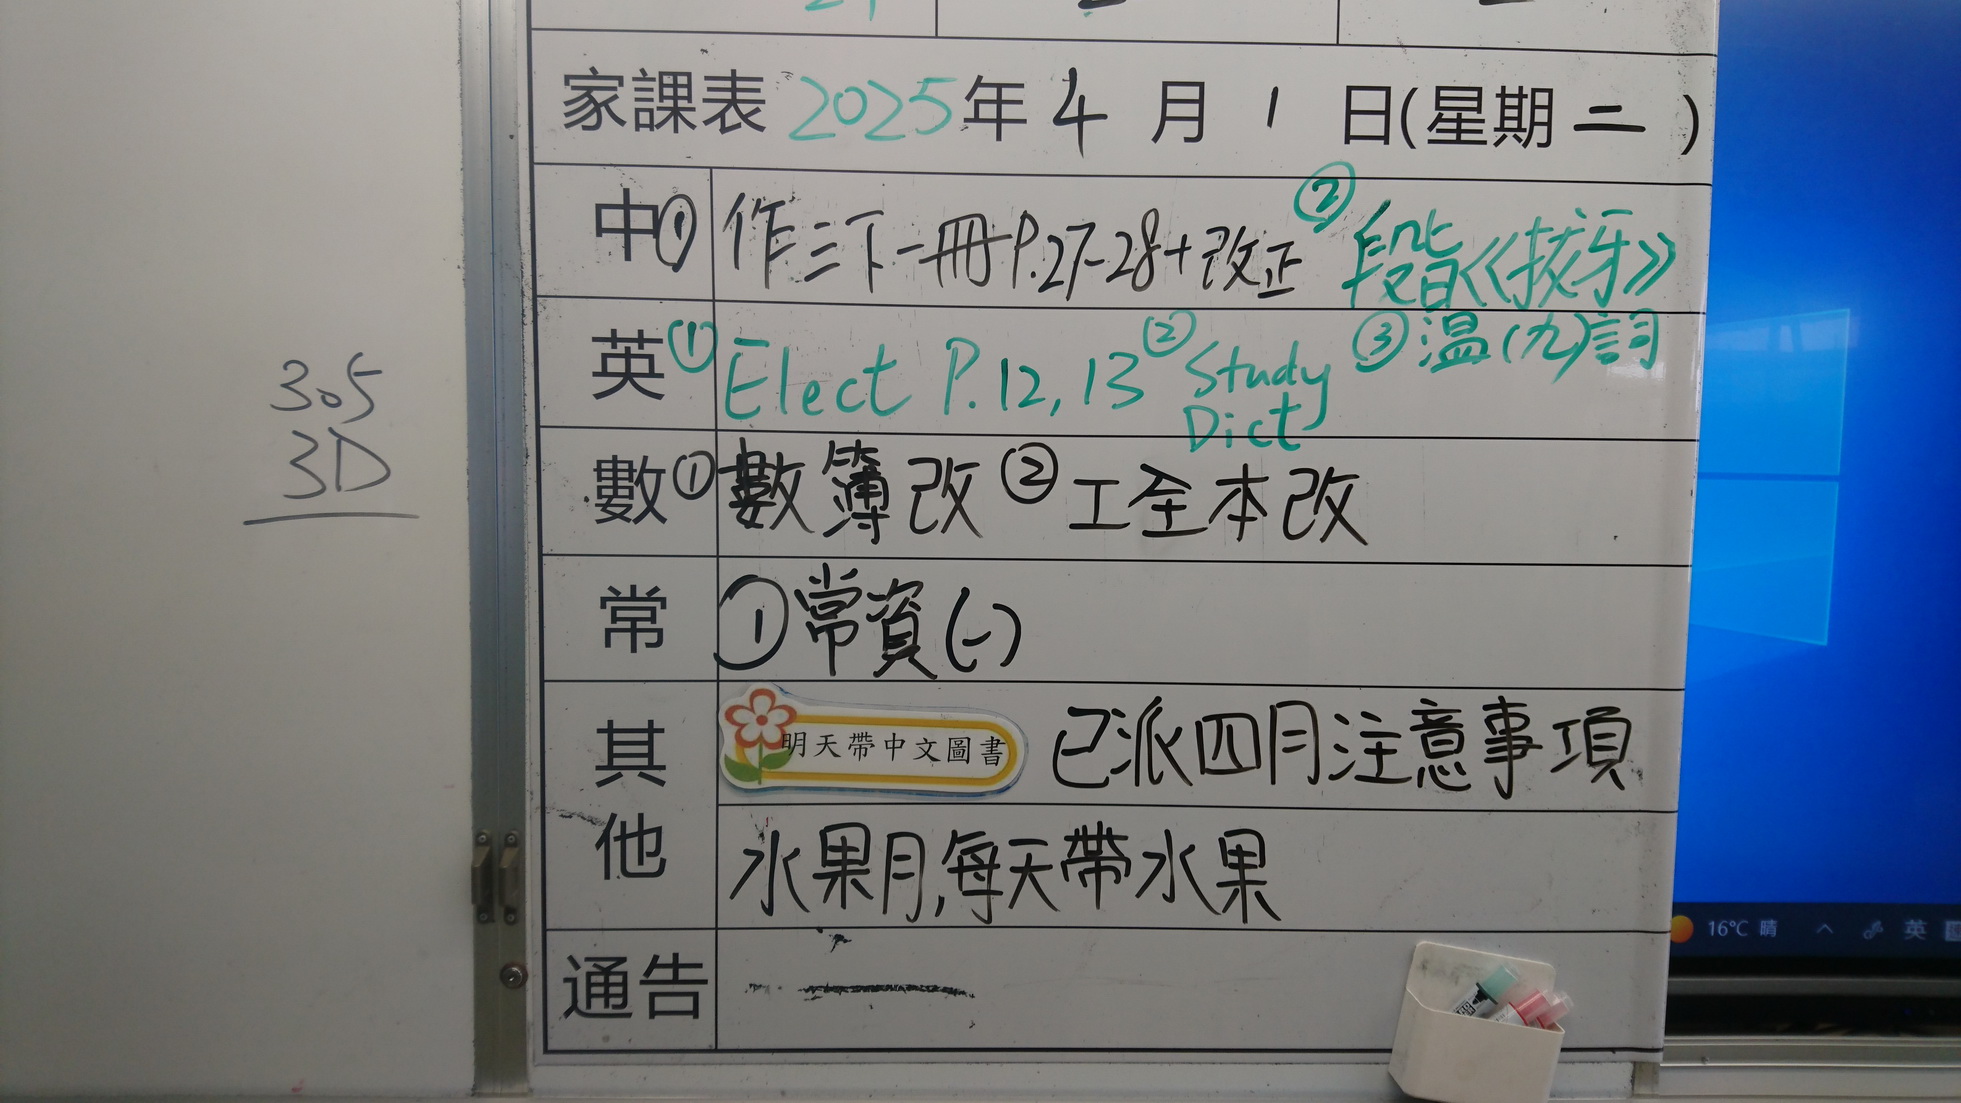 305
3D
家課表 2025年 4 月 1 日(星期 二 )
中 ① 作三下一冊 P.27-28+改正 ② 段皆《拔牙》
③ 温(九)詞
英 ① Elect P.12, 13 ② Study
Dict
數 ① 數簿改 ② 工全本改
常 ① 常資(一)
其他
明天帶中文圖書 已派四月注意事項
水果月,每天帶水果
通告
16°C 晴 英